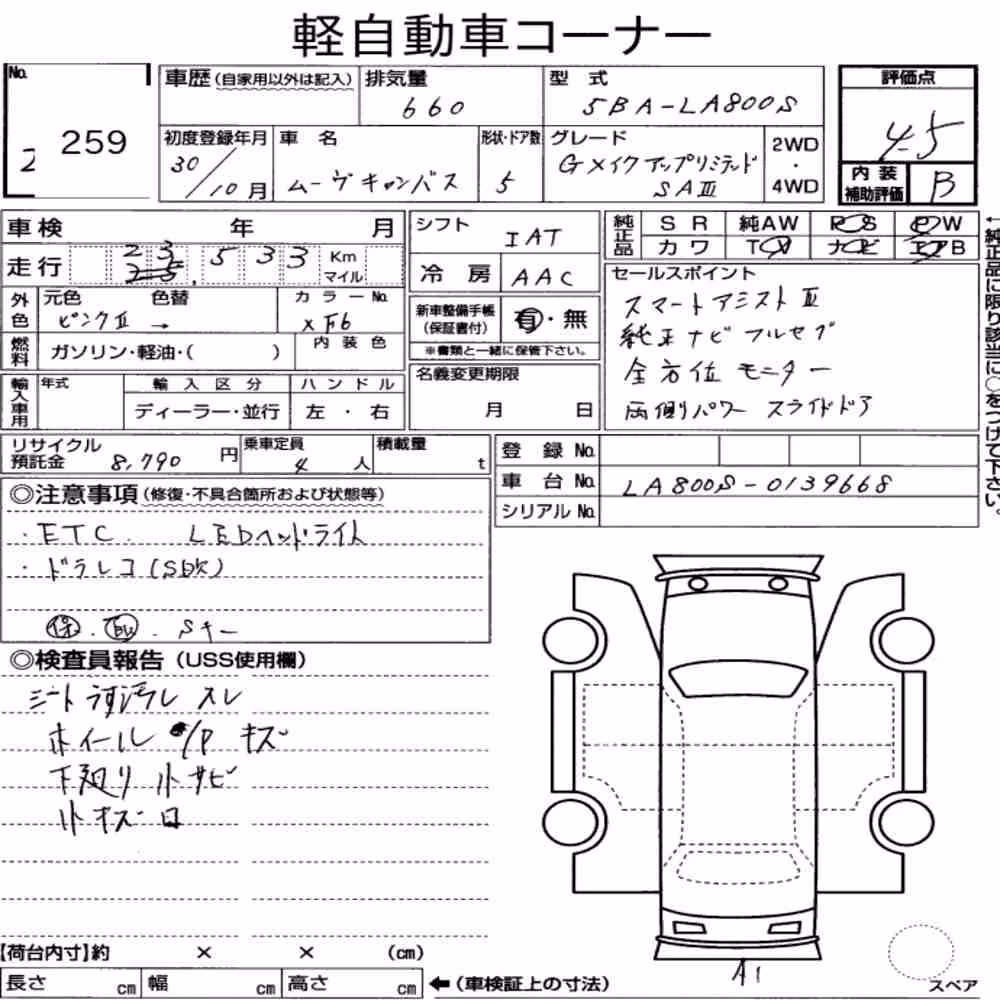 軽自動車コーナー
No.
259
2
車歴(自家用以外は記入)
排気量
660
型式
5BA-LA800S
評価点
4.5
内装補助評価
B
初度登録年月
30/10月
車名
ムーヴキャンバス
形状・ドア数
5
グレード
GメイクアップリミテッドSAⅢ
2WD
・
4WD
車検 年 月
走行
23,533
Km
マイル
シフト
IAT
冷房
AAC
純正品
SR 純AW PS PW
カワ TV ナビ エアB
外色
元色 色替
ピンクⅡ →
カラーNo.
XF6
内装色
燃料
ガソリン・軽油・( )
新車整備手帳
(保証書付)
有・無
※書類と一緒に保管下さい。
セールスポイント
スマートアシストⅢ
純正ナビ フルセグ
全方位モニター
両側パワースライドドア
←純正品に限り該当に○をつけて下さい。
輸入車用
年式
輸入区分
ディーラー・並行
ハンドル
左・右
名義変更期限
月 日
リサイクル預託金
8,790円
乗車定員
4人
積載量
t
登録No.
車台No.
LA800S-0139668
シリアルNo.
◎注意事項(修復・不具合箇所および状態等)
・ETC. LEDヘッドライト
・ドラレコ(S吹)
保.取.Sキー
◎検査員報告(USS使用欄)
シート うす汚れ スレ
ホイール キズ
下廻り 小サビ
小キズ
【荷台内寸】約 × × (cm)
長さ cm 幅 cm 高さ cm
←(車検証上の寸法)
A1
スペア